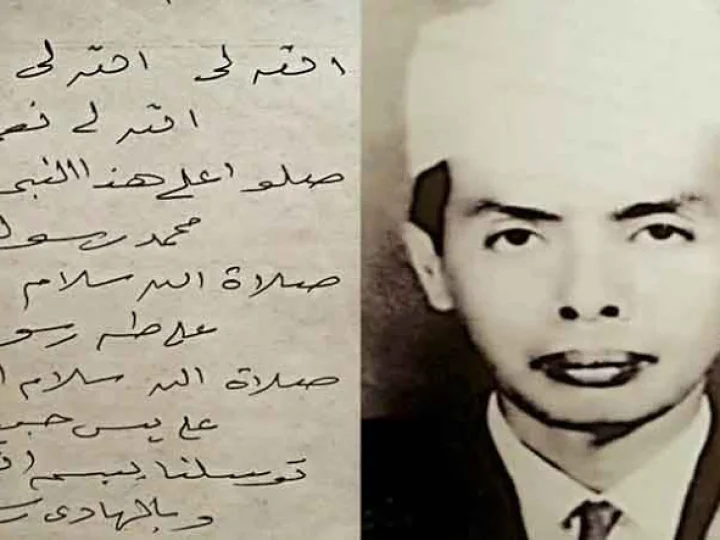 الله لى الله لى
الله لى نعم
صلوا على هذا النبى
محمد رسول
صلاة الله سلام
على طه رسو
صلاة الله سلام ا
على يس حبيـ
توسلنا ببسم ا
وبالهادى ر